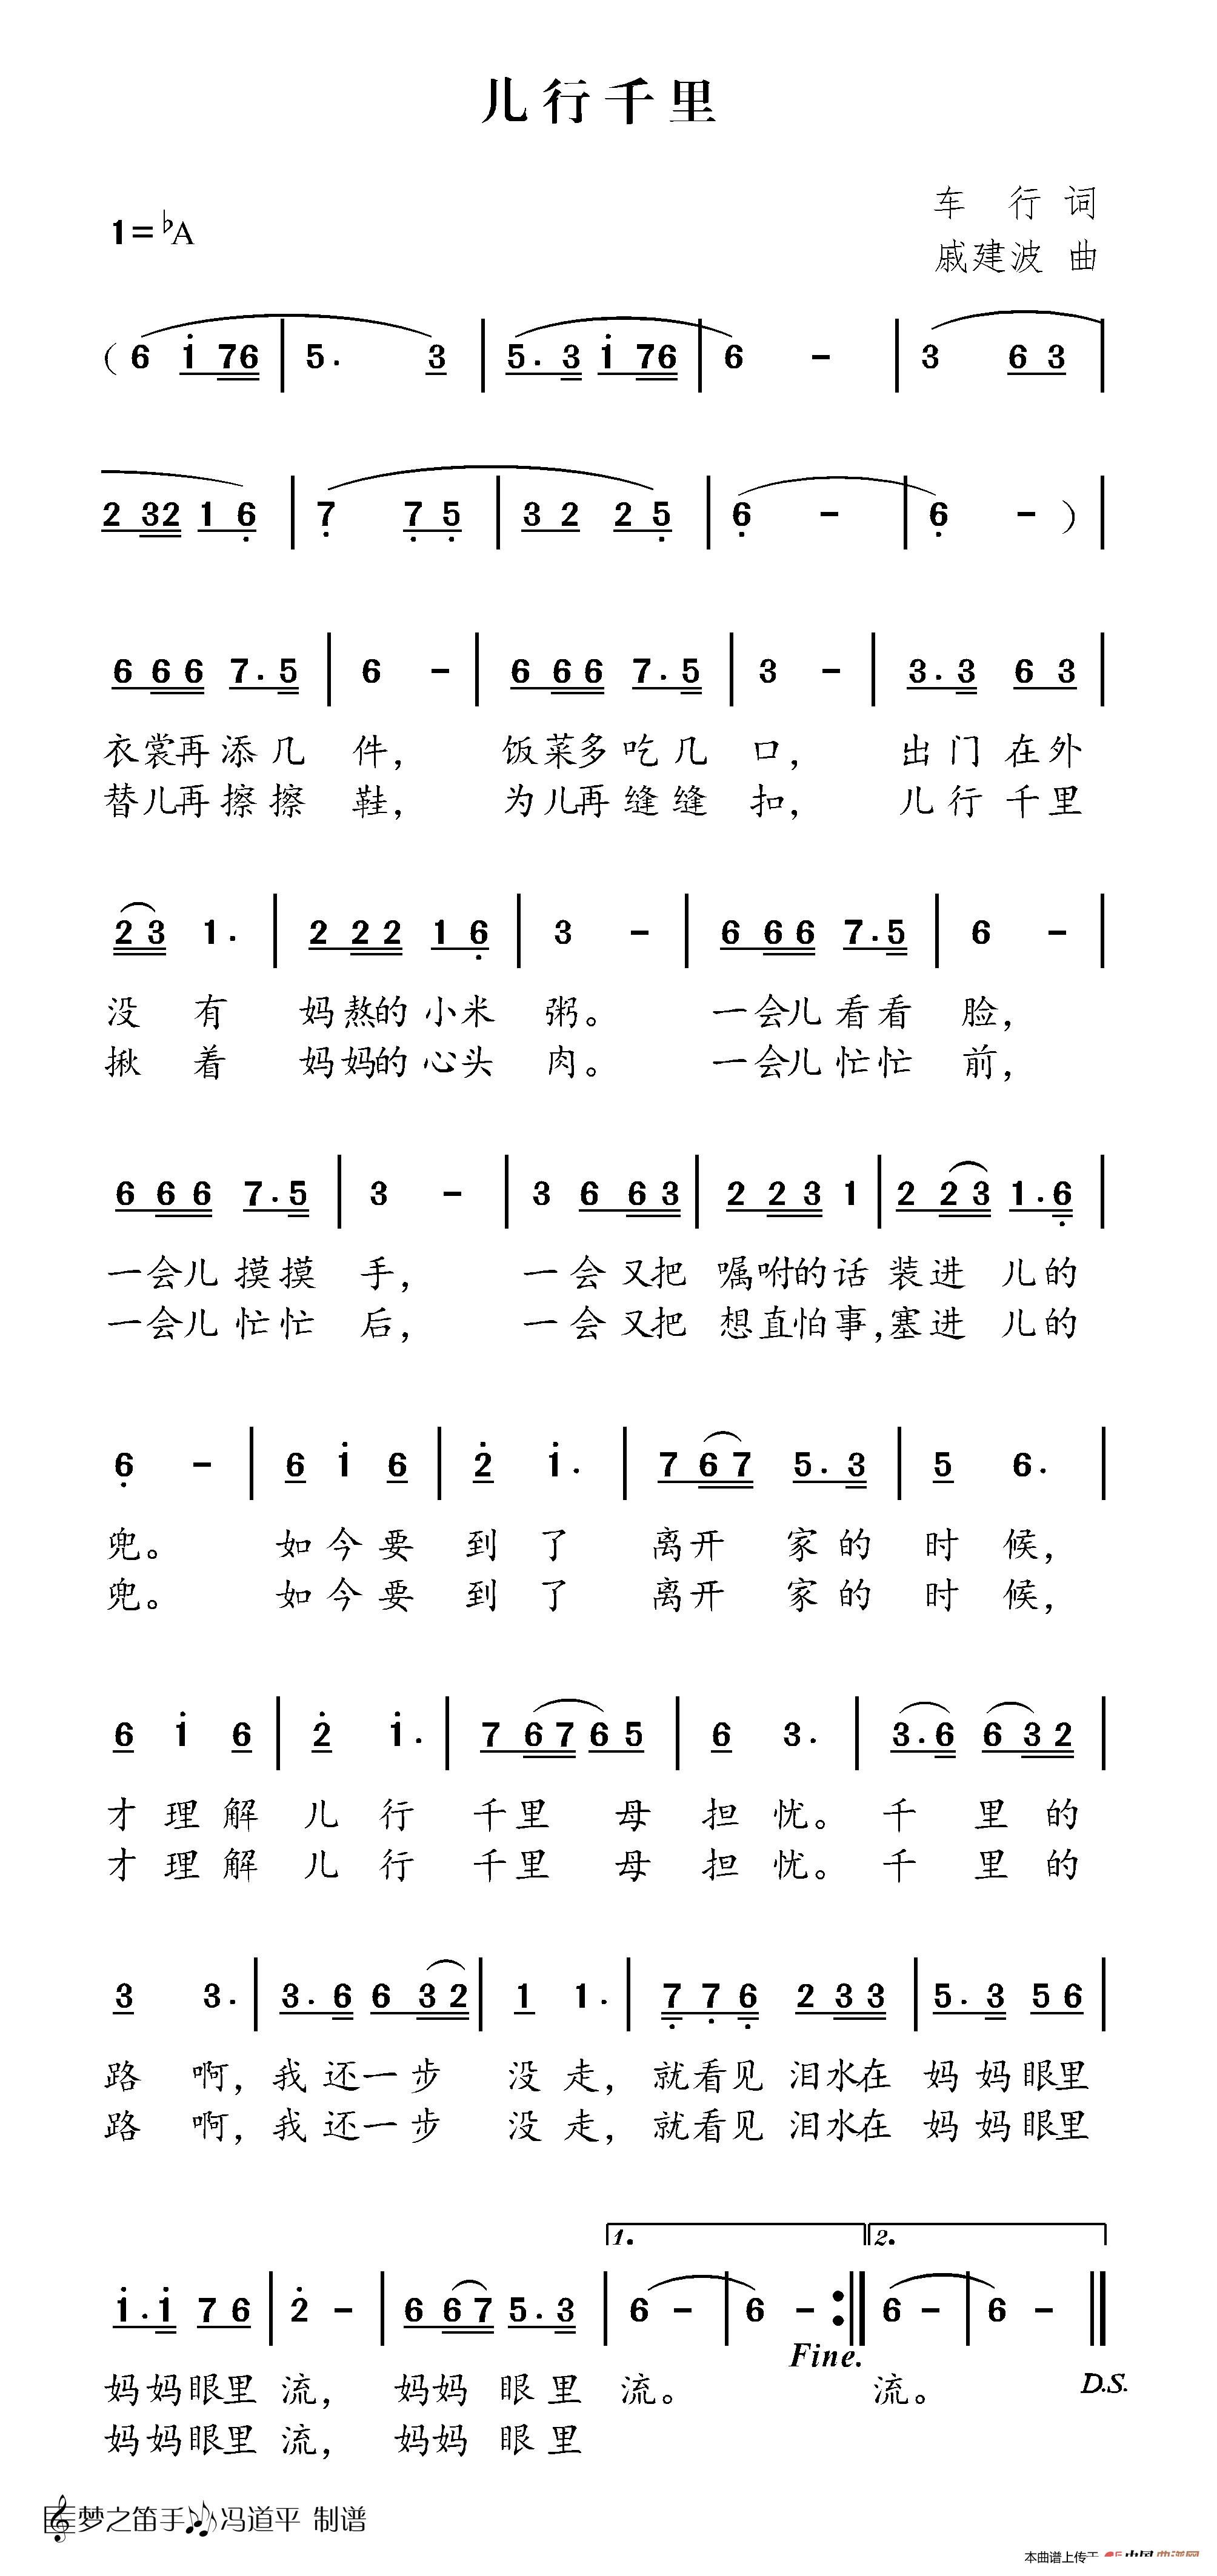 儿行千里
车 行 词
1=♭A
戚建波 曲
( 6 i 76 | 5. 3 | 5. 3 i 76 | 6 - | 3 6 3 |
2 32 1 6 | 7 7 5 | 3 2 2 5 | 6 - | 6 - ) |
6 6 6 7. 5 | 6 - | 6 6 6 7. 5 | 3 - | 3. 3 6 3 |
衣裳再添几 件, 饭菜多吃几 口, 出门在外
替儿再擦擦 鞋, 为儿再缝缝 扣, 儿行千里
2 3 1. | 2 2 2 1 6 | 3 - | 6 6 6 7. 5 | 6 - |
没 有 妈熬的小米 粥。 一会儿看看 脸,
揪 着 妈妈的心头 肉。 一会儿忙忙 前,
6 6 6 7. 5 | 3 - | 3 6 6 3 | 2 2 3 1 | 2 2 3 1. 6 |
一会儿摸摸 手, 一会又把 嘱咐的话 装进 儿的
一会儿忙忙 后, 一会又把 想直怕事,塞进 儿的
6 - | 6 i 6 | 2 i. | 7 6 7 5. 3 | 5 6. |
兜。 如今要 到了 离开 家的 时候,
兜。 如今要 到了 离开 家的 时候,
6 i 6 | 2 i. | 7 6 7 6 5 | 6 3. | 3. 6 6 3 2 |
才理解 儿行 千里 母 担忧。千 里的
才理解 儿行 千里 母 担忧。千 里的
3 3. | 3. 6 6 3 2 | 1 1. | 7 7 6 2 3 3 | 5. 3 5 6 |
路 啊, 我还一步 没走, 就看见 泪水在 妈妈眼里
路 啊, 我还一步 没走, 就看见 泪水在 妈妈眼里
1. 2.
i. i 7 6 | 2 - | 6 6 7 5. 3 | 6 - | 6 - :‖ 6 - | 6 - ‖
Fine.
D.S.
妈妈眼里 流, 妈妈 眼里 流。 流。
妈妈眼里 流, 妈妈 眼里
梦之笛手 冯道平 制谱
本曲谱上传于